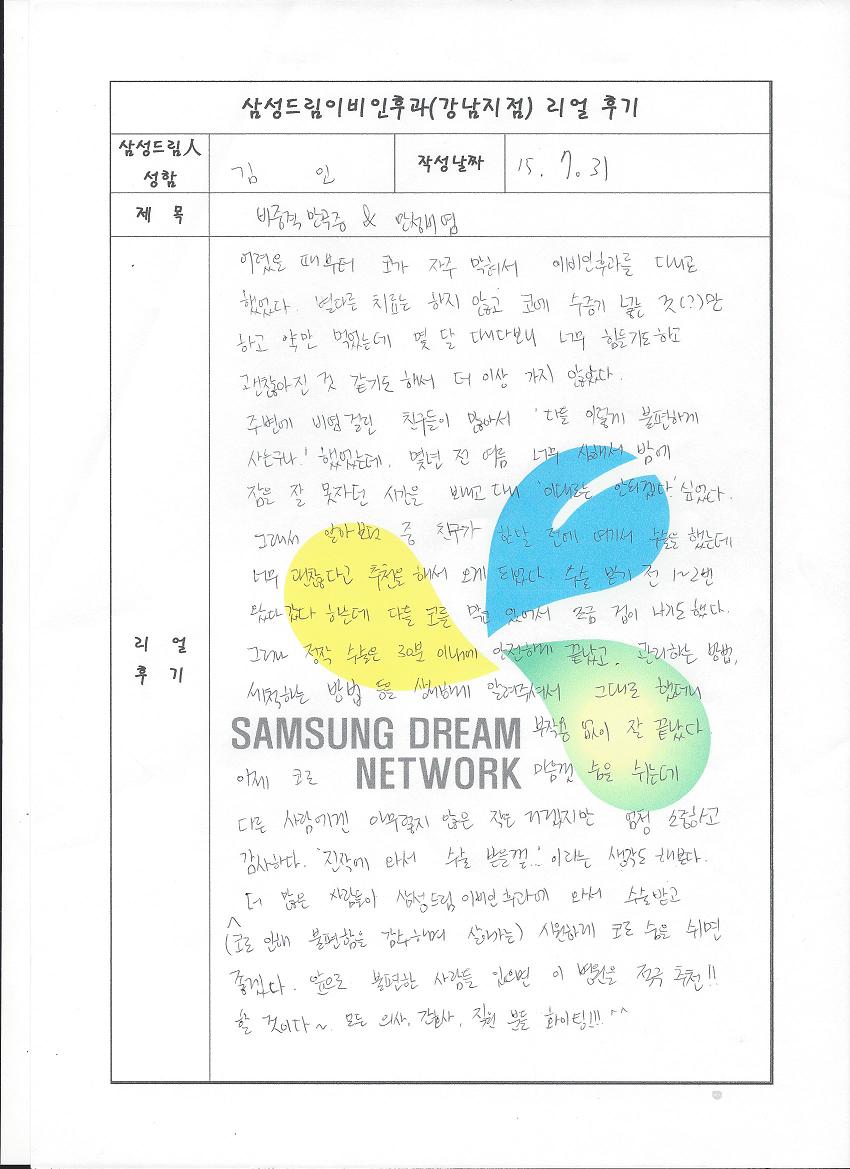 삼성드림이비인후과(강남지점) 리얼 후기
삼성드림人 성함
김 인
작성날짜
15. 7. 31
제 목
비중격 만곡증 & 만성비염
리 얼 후 기
어렸을 때부터 코가 자주 막혀서 이비인후과를 다니고
했었다. 별다른 치료는 하지 않고 코에 수증기 넣는 것(?)만
하고 약만 먹었는데 몇 달 다니다보니 너무 힘들기도하고
괜찮아진 것 같기도 해서 더 이상 가지 않았다.
주변에 비염 걸린 친구들이 많아서 '다들 이렇게 불편하게
사는구나.' 했었는데. 몇년 전 여름 너무 심해서 밤에
잠을 잘 못자던 시간을 보내고 나니 '이대로는 안되겠다' 싶었다.
그래서 알아보던 중 친구가 한달 전에 여기서 수술을 했는데
너무 괜찮다고 추천을 해서 오게 되었다. 수술 받기 전 1~2번
왔다 갔다 하는데 다들 코를 막고 있어서 조금 겁이 나기도 했다.
그러나 정작 수술은 30분 이내에 안전하게 끝났고. 관리하는 방법,
세척하는 방법 등을 상세하게 알려주셔서 그대로 했더니
부작용 없이 잘 끝났다.
SAMSUNG DREAM
NETWORK
이제 코로 마음껏 숨을 쉬는데
다른 사람에겐 아무렇지 않은 작은 거겠지만 엄청 소중하고
감사하다. '진작에 와서 수술 받을걸..' 이라는 생각도 해본다.
더 많은 사람들이 삼성드림 이비인후과에 와서 수술받고
(코로 인해 불편함을 감수하며 살아가는) 시원하게 코로 숨을 쉬면
좋겠다. 앞으로 불편한 사람들 있으면 이 병원을 적극 추천!!
할 것이다~ 모든 의사, 간호사, 직원 분들 화이팅!!! ^^